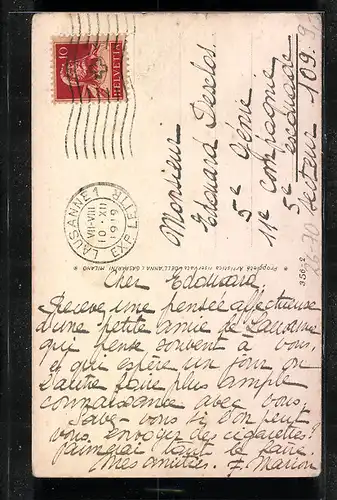 10
HELVETIA
LAUSANNE 1
VII-VIII
10·XII
EXP. LETTR.
Monsieur
Edouard Desclos
5e Génie
11e compagnie
5e escouade
secteur 109.
356-2
Cher Edouard,
Recevez une pensée affectueuse
d'une petite amie de Lausanne
qui pense souvent à vous,
et qui espère un jour ou
l'autre faire plus ample
connaissance avec vous.
Savez-vous si l'on peut
vous envoyer des cigarettes?
j'aimerai tant le faire.
Mes amitiés. J. Marion